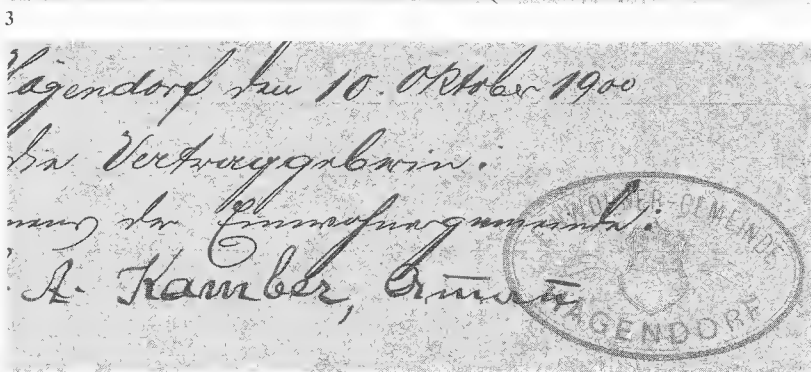 3
Hägendorf den 10. Oktober 1900
die Vertraggeberin:
namens der Einwohnergemeinde:
A. Kamber, Amann
EINWOHNER-GEMEINDE
HAGENDORF